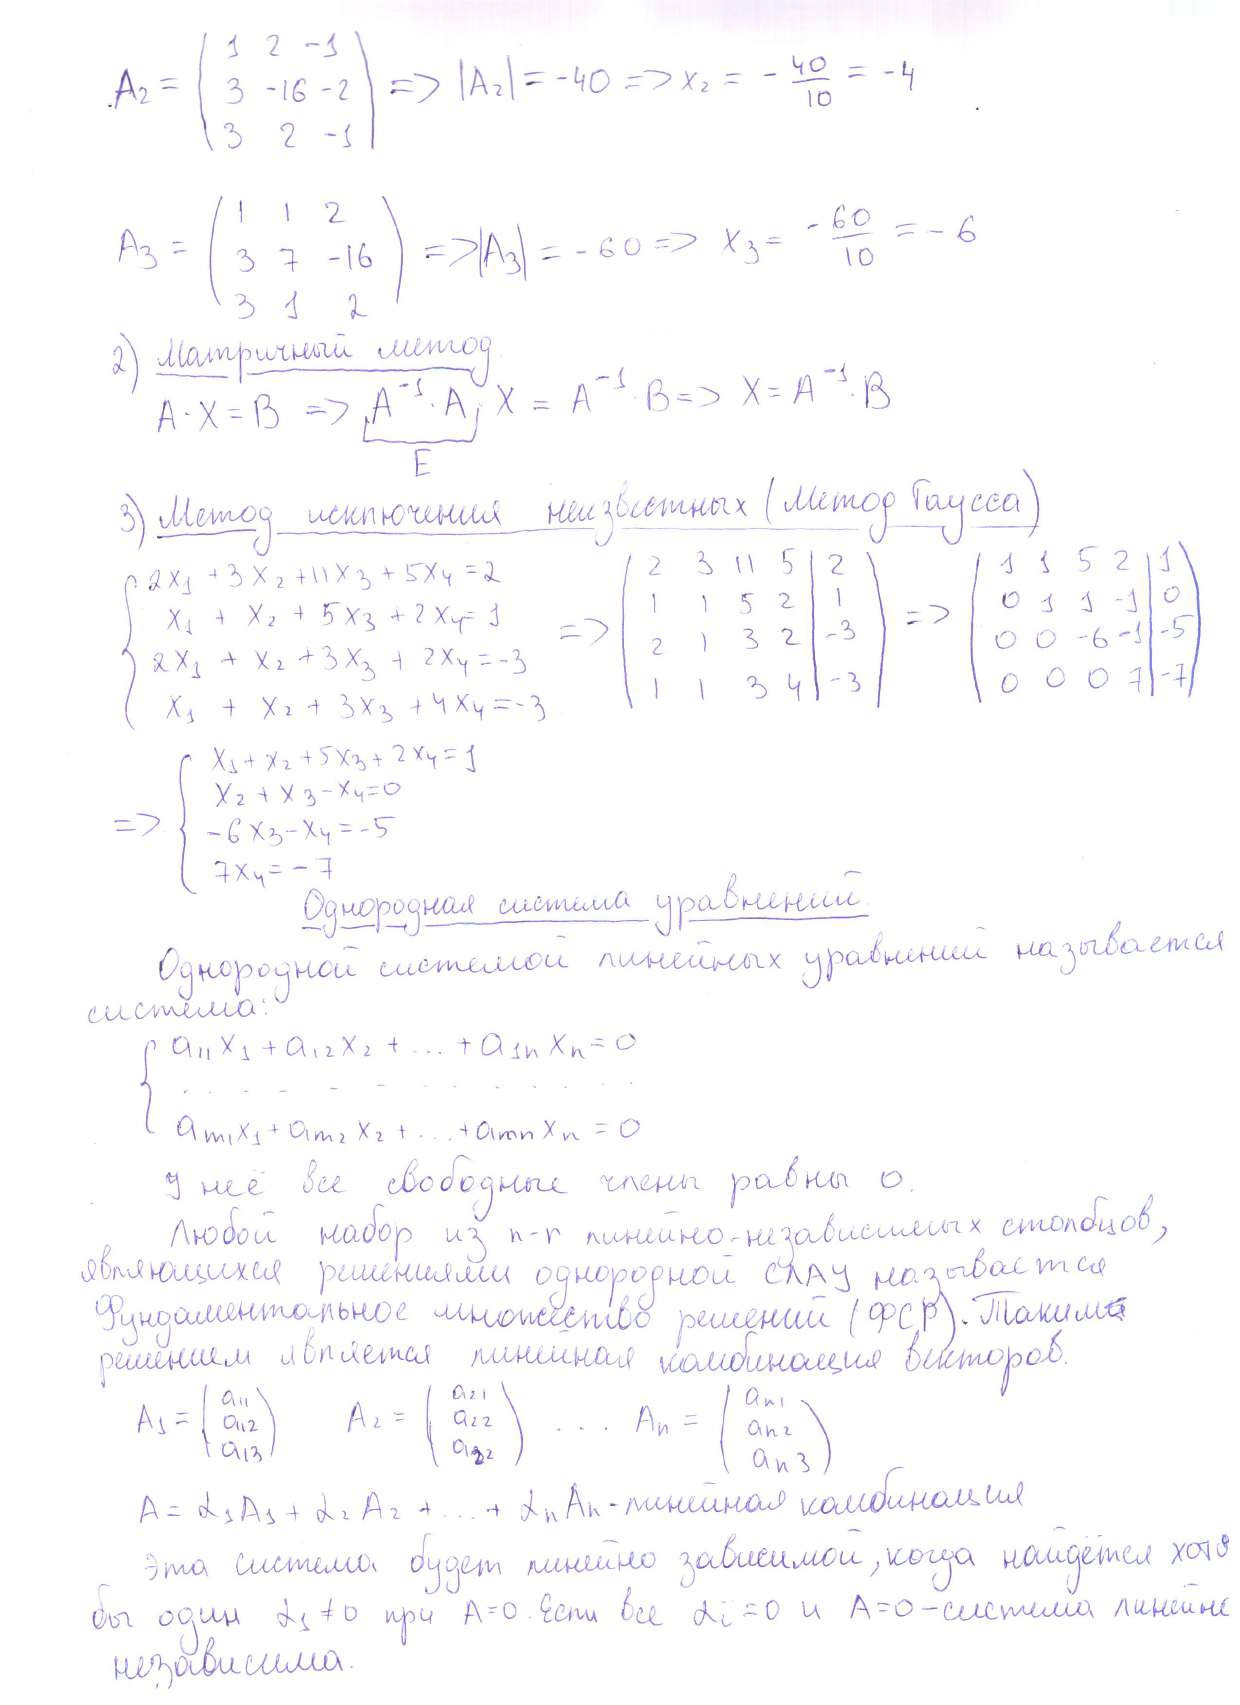 A₂ = ( 1 2 -1 ; 3 -16 -2 ; 3 2 -1 ) => |A₂| = -40 => x₂ = - 40/10 = -4
A₃ = ( 1 1 2 ; 3 7 -16 ; 3 1 2 ) => |A₃| = -60 => x₃ = -60/10 = -6
2) Матричный метод
A·X = B => A⁻¹·A, X = A⁻¹·B => X = A⁻¹·B
E
3) Метод исключения неизвестных (Метод Гаусса)
{ 2x₁ + 3x₂ + 11x₃ + 5x₄ = 2
x₁ + x₂ + 5x₃ + 2x₄ = 1
2x₁ + x₂ + 3x₃ + 2x₄ = -3
x₁ + x₂ + 3x₃ + 4x₄ = -3
=> ( 2 3 11 5 | 2 ; 1 1 5 2 | 1 ; 2 1 3 2 | -3 ; 1 1 3 4 | -3 ) => ( 1 1 5 2 | 1 ; 0 1 1 -1 | 0 ; 0 0 -6 -1 | -5 ; 0 0 0 7 | -7 )
=> { x₁ + x₂ + 5x₃ + 2x₄ = 1
x₂ + x₃ - x₄ = 0
-6x₃ - x₄ = -5
7x₄ = -7
Однородная система уравнений
Однородной системой линейных уравнений называется
система:
{ a₁₁x₁ + a₁₂x₂ + ... + a₁ₙxₙ = 0
. . . . . . . . . . . .
aₘ₁x₁ + aₘ₂x₂ + ... + aₘₙxₙ = 0
У неё все свободные члены равны 0.
Любой набор из n-r линейно-независимых столбцов,
являющихся решениями однородной СЛАУ называется
Фундаментальное множество решений (ФСР). Таким
решением является линейная комбинация векторов.
A₁ = ( a₁₁ ; a₁₂ ; a₁₃ ) A₂ = ( a₂₁ ; a₂₂ ; a₃₂ ) ... Aₙ = ( aₙ₁ ; aₙ₂ ; aₙ₃ )
A = α₁A₁ + α₂A₂ + ... + αₙAₙ - линейная комбинация
Эта система будет линейно зависимой, когда найдётся хотя
бы один α₁ ≠ 0 при A=0. Если все αᵢ = 0 и A=0 - система линейно
независима.